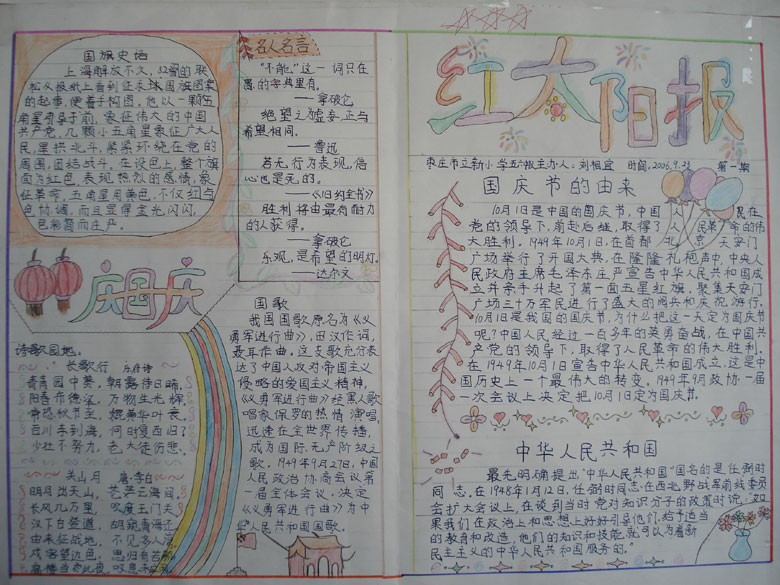 国旗史话
上海解放不久,
起草,便着手构图。他以一颗五
象征伟大的中国
共产党,几颗小五角星象征广大人
民,星拱北斗,紧紧环绕在党的
周围,团结战斗,在设色上,整个旗
面为红色,表现热烈的感情,象
征革命,五角星用黄色,不仅红与
色协调,而且显得金光闪闪,
色彩简而庄严。
庆国庆
诗歌园地。
长歌行 乐府诗
青青园中葵,朝露待日晞,
阳春布德泽,万物生光辉,
常恐秋节至,焜黄华叶衰,
百川东到海,何时复西归?
少壮不努力,老大徒伤悲,
关山月 唐·李白
明月出天山,苍茫云海间,
长风几万里,吹度玉门关
汉下白登道,胡窥青海湾
由来征战地,不见
戍客望边色,思归
名人名言
“不能”这一词只在
愚
——拿破仑
绝望之为虚妄,正与
希望相同。
——鲁迅
若无行为表现,信
心也是死的。
——《旧约全书》
胜利将由最有耐力
的人获得。
——拿破仑
乐观,是希望的明灯。
——达尔文
国歌
我国国歌原名为《义
勇军进行曲》,田汉作词,
聂耳作曲。这支歌充分表
达了中国人反对帝国主义
侵略的爱国主义精神,
《义勇军进行曲》经黑人歌
唱家保罗的热情演唱,
迅速在全世界传播,
成为国际无产阶级之
歌,1949年9月27日,中国
人民政治协商会议第
一届全体会议,决定
《义勇军进行曲》为中
华人民共和国国歌。
红太阳报
枣庄市立新小学五 主办人:刘 时间:2006.9.23 第一期
国庆节的由来
10月1日是中国的国庆节,中国人
党的领导下,前赴后继,取得了人民革命的伟
大胜利。1949年10月1日,在首都北京天安门
广场举行了开国大典,在隆隆礼炮声中,中央人
民政府主席毛泽东庄严宣告中华人民共和国成
立并亲手升起了第一面五星红旗,聚集天安门
广场三十万军民进行了盛大的阅兵和庆祝游行。
10月1日是我国的国庆节,为什么把这一天定为国庆节
呢?中国人民经过一百多年的英勇奋战,在中国共
产党的领导下,取得了人民革命的伟大胜利。
在1949年10月1日宣告中华人民共和国成立,这是中
国历史上一个最伟大的转变。1949年9月政协一届
一次会议上决定把10月1日定为国庆节。
中华人民共和国
最先明确提出“中华人民共和国”国名的是任弼时
同志。在1948年1月12日,任弼时同志,在西北野战军前线委员
会扩大会议上,在谈到当时党对知识分子的政策时说:“如
果我们在政治上和思想上好好引导他们,给予适当
的教育和改造,他们的知识和技能就可以为着新
民主主义的中华人民共和国服务的。”